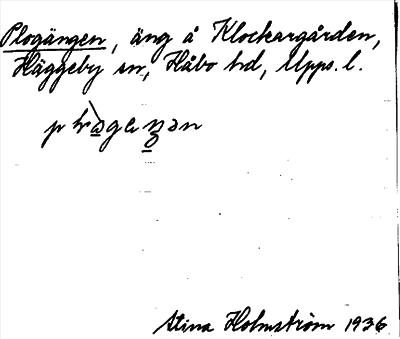 Plogängen, äng å Klockargården,
Häggeby sn, Håbo hd, Upps. l.
Stina Holmström 1936